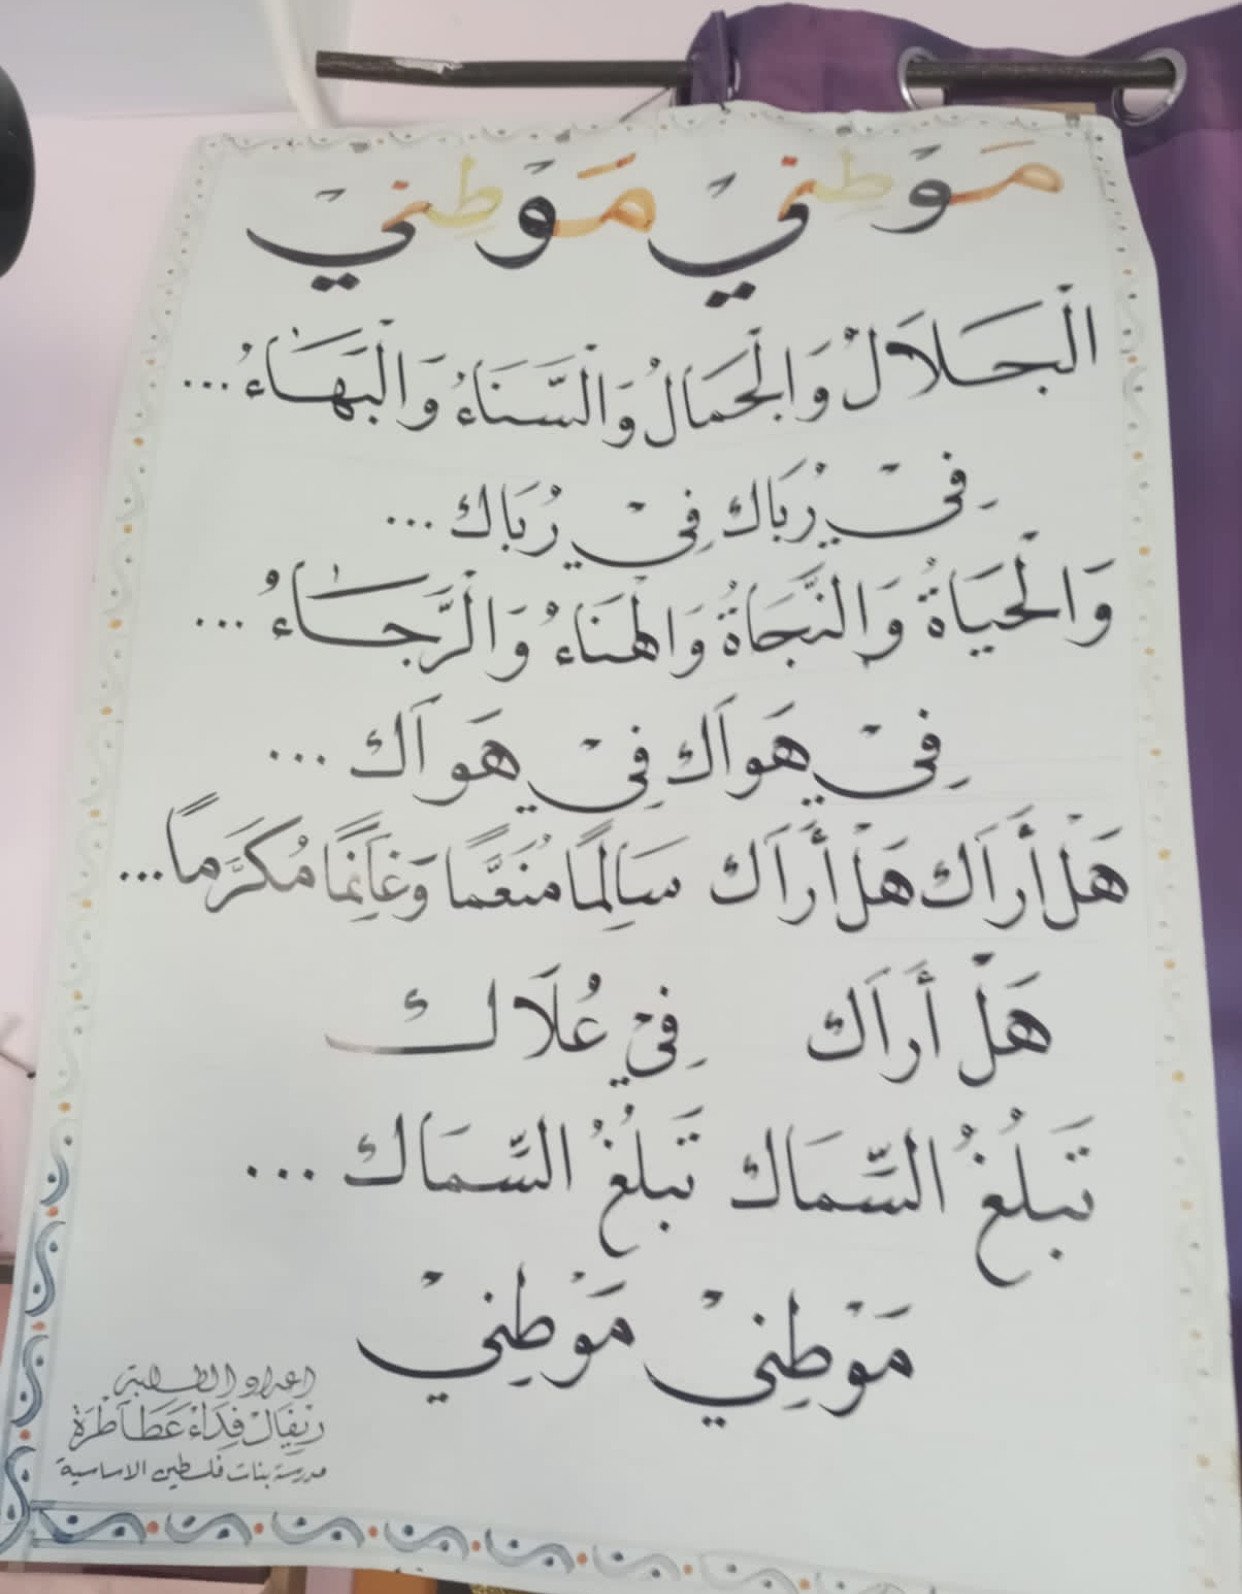 مَوْطِنيْ مَوْطِنيْ
الْجَلَالُ وَالْجَمَالُ وَالْسَّنَاءُ وَالْبَهَاءُ ...
فِيْ رُبَاك فِيْ رُبَاك ...
وَالْحَيَاةُ وَالنَّجَاةُ وَالْهَنَاءُ وَالْرَّجَاءُ ...
فِيْ هَوَاك فِيْ هَوَاك ...
هَلْ أَرَاك هَلْ أَرَاك سَالِمًا مُنَعَّمًا وَغَانِمًا مُكَرَّماً ...
هَلْ أَرَاك فِيْ عُلَاك
تَبلُغُ السِّمَاك تَبلُغُ السِّمَاك ...
مَوْطِنِيْ مَوْطِنِيْ
اعداد الطلبة
فِدَاءْ عَطَاطْرَة
مدرسة بنات فلسطين الاساسية